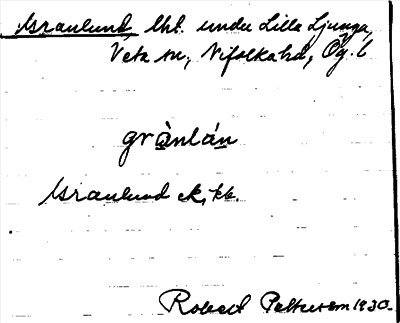 Granlund, lht. under Lilla Ljunga,
Veta sn, Vifolka hd, Ög. l
grànlán
Granlund ek. kb.
Robert Pettersson 1930.